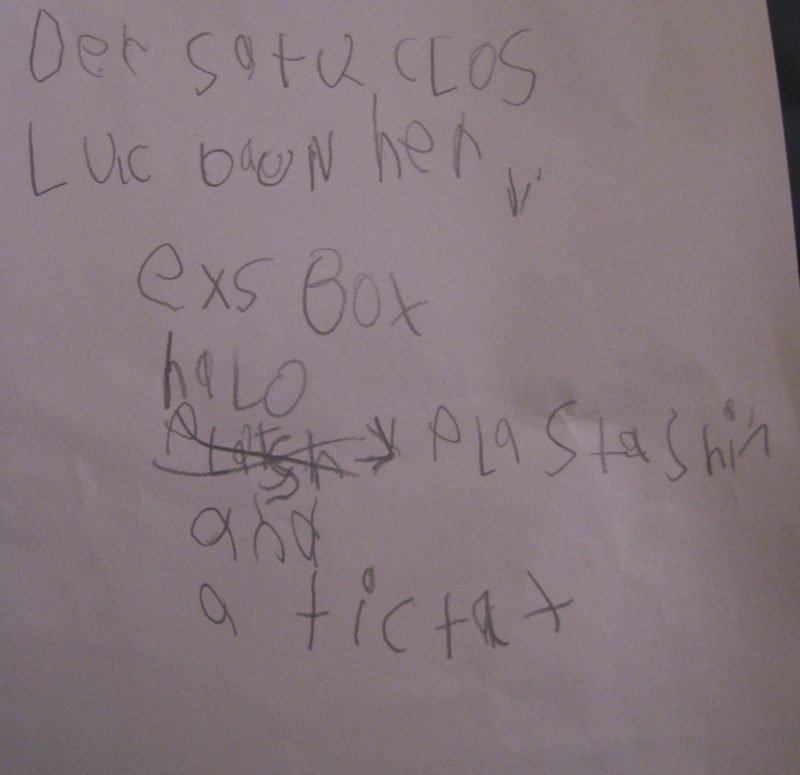 Der satu clos
Luic daoN her
exs Box
halo
Plastashin
and
a tictat